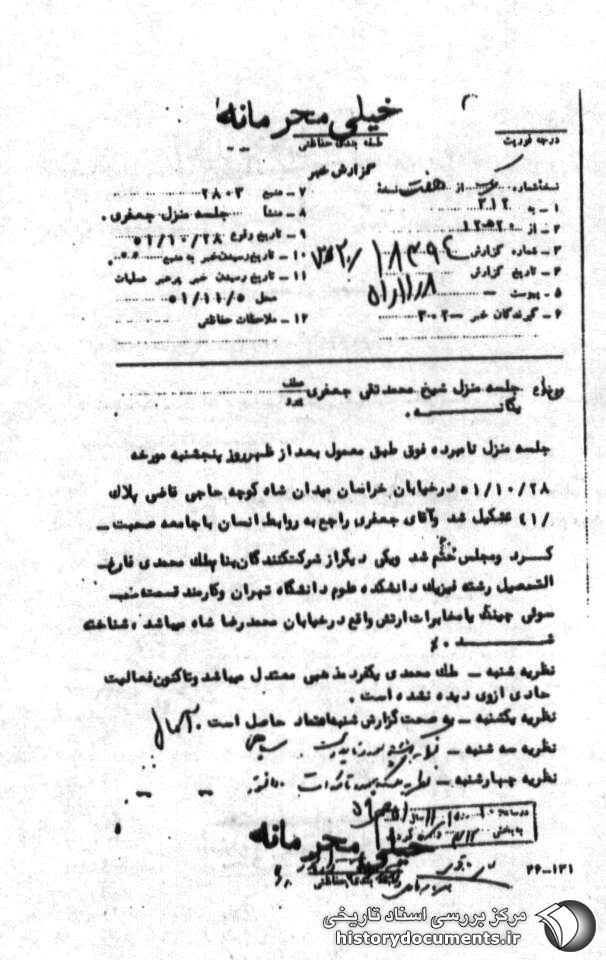 خیلی محرمانه
درجه فوریت
طبقه بندی حفاظتی
گزارش خبر
نسخه شماره از هفت نسخه
۱ ـ به ۳۱۲
۲ ـ از ۱۲ﻫ۲۰
۳ ـ شماره گزارش
۴ ـ تاریخ گزارش ۵۱/۱۱/۸
۵ ـ پیوست ـ
۶ ـ گیرندگان خبر ـ ۳۰۲
۷ ـ منبع ۲۸۰۳
۸ ـ منشأ جلسه منزل جعفری .
۹ ـ تاریخ وقوع ۵۱/۱۰/۲۸
۱۰ ـ تاریخ رسیدن خبر به منبع
۱۱ ـ تاریخ رسیدن خبر برهبر عملیات
محل ۵۱/۱۱/۵
۱۲ ـ ملاحظات حفاظتی
جلسه منزل شیخ محمد تقی جعفری
جلسه منزل نامبرده فوق طبق معمول بعد از ظهر روز پنجشنبه مورخه
۵۱/۱۰/۲۸ در خیابان خراسان میدان شاه کوچه حاجی قاضی پلاک
۴۱/ تشکیل شد و آقای جعفری راجع به روابط انسان با جامعه صحبت ـ
کرد و مجلس ختم شد ویکی دیگر از شرکت کنندگان بنام ملک محمدی فارغ ـ
التحصیل رشته فیزیک دانشکده علوم دانشگاه تهران وکارمند قسمت
با مخابرات ارتش واقع در خیابان محمد رضا شاه میباشد ، شناخته
شد .
نظریه شنبه ـ ملک محمدی یکفرد مذهبی معتدل میباشد وتاکنون فعالیت
حادی از وی دیده نشده است .
نظریه یکشنبه ـ به صحت گزارش شنبه اعتماد حاصل است .
نظریه سه شنبه ـ
نظریه چهارشنبه ـ
خیلی محرمانه
طبقه بندی حفاظتی
۲۶ـ۱۳۱
مرکز بررسی اسناد تاریخی
historydocuments.ir